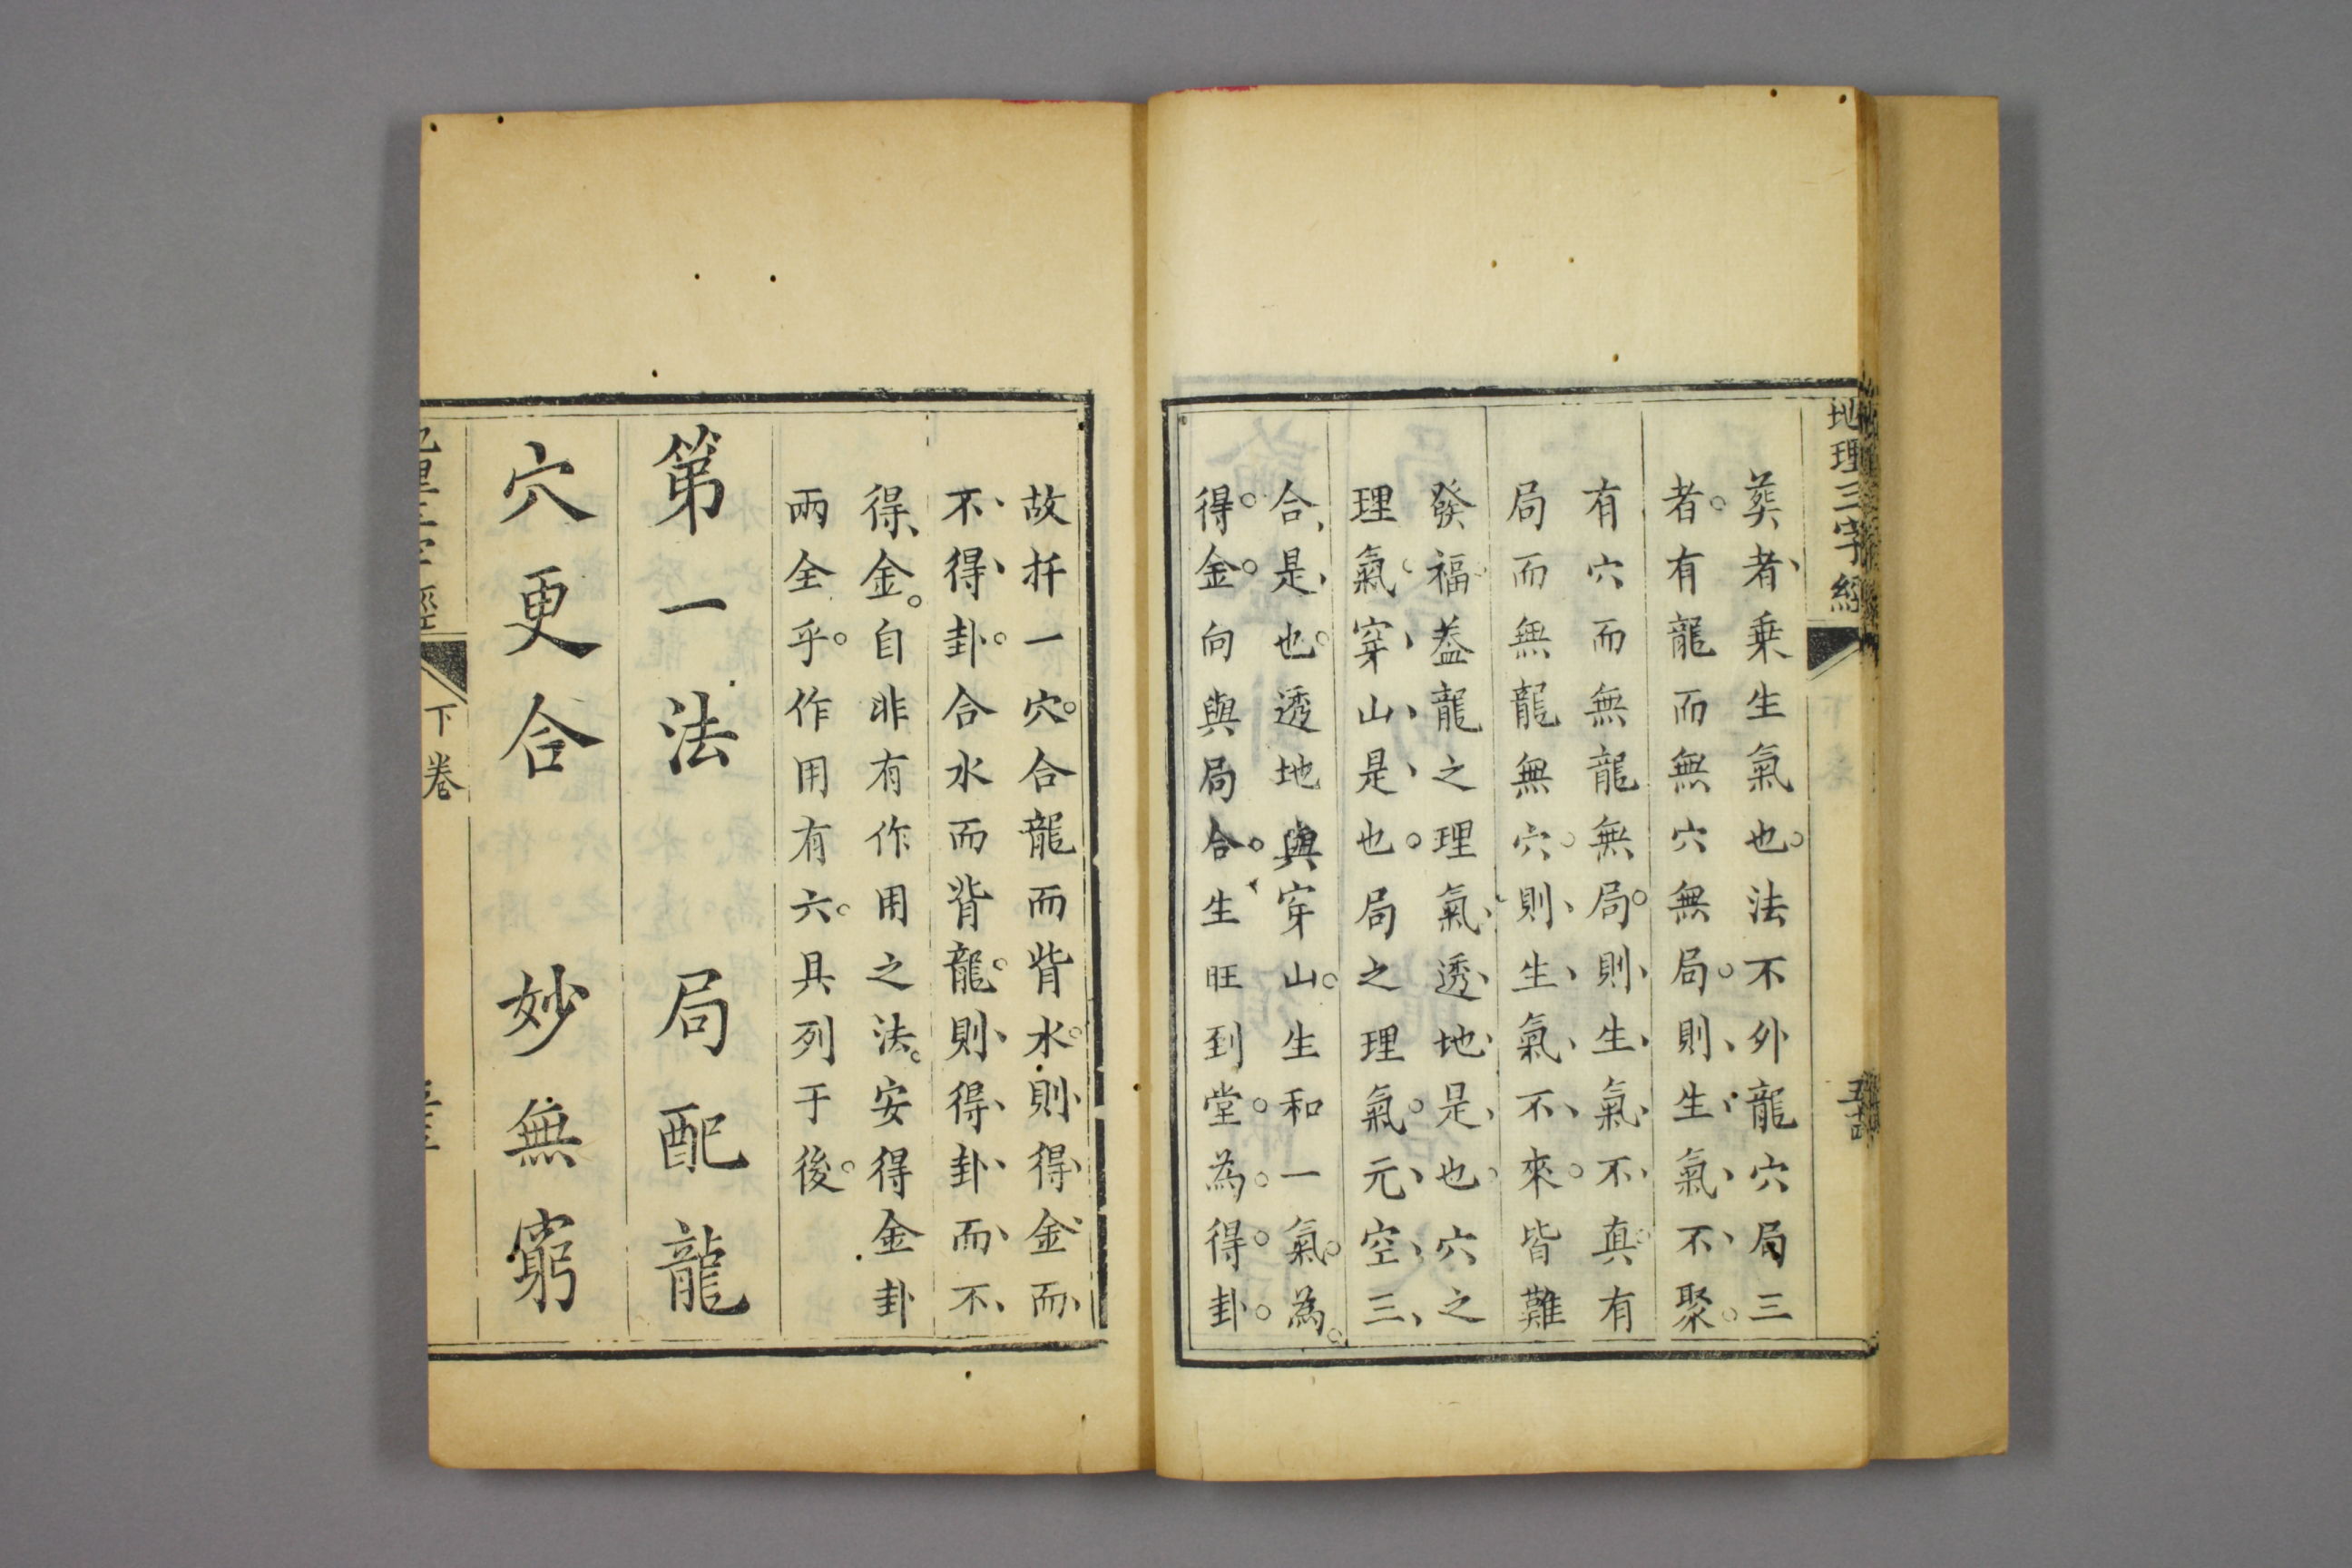 地理三字經
葬者乗生氣也。法不外龍穴局三
者。有龍而無穴無局。則生氣不聚。
有穴而無龍無局。則生氣不真。有
局而無龍無穴。則生氣不來。皆難
發福。葢龍之理氣、透地是也。穴之
理氣。穿山是也。局之理氣。元空三
合是也。透地與穿山。生和一氣。為。
得。金。向與局合。生旺到堂。為。得。卦。
故扦一穴。合龍而背水。則得金而
不得卦。合水而背龍。則得卦而不
得金。自非有作用之法。安得金卦
兩全乎。作用有六。具列于後。
第一法 局配龍
穴更合 妙無窮
下卷